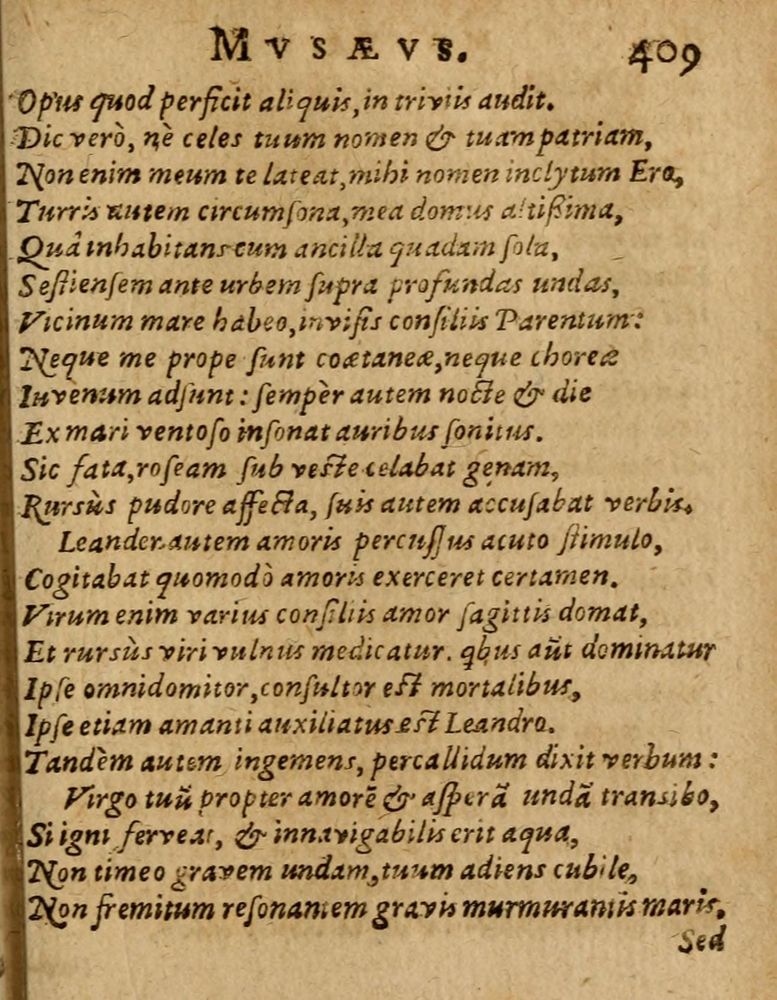 MVSÆVS. 409
Opus quod perficit aliquis, in triviis audit.
Dic verò, nè celes tuum nomen & tuam patriam,
Non enim meum te lateat, mihi nomen inclytum Ero,
Turris autem circumſona, mea domus altißima,
Quâ inhabitans cum ancilla quadam ſola,
Seſtienſem ante urbem ſupra profundas undas,
Vicinum mare habeo, inviſis conſiliis Parentum:
Neque me prope ſunt coætaneæ, neque choreæ
Iuvenum adſunt: ſempèr autem nocte & die
Ex mari ventoſo inſonat auribus ſonitus.
Sic fata, roſeam ſub veſte celabat genam,
Rursùs pudore affecta, ſuis autem accuſabat verbis.
Leander autem amoris percuſſus acuto ſtimulo,
Cogitabat quomodò amoris exerceret certamen.
Virum enim varius conſiliis amor ſagittis domat,
Et rursùs viri vulnus medicatur. qbus aūt dominatur
Ipſe omnidomitor, conſultor eſt mortalibus,
Ipſe etiam amanti auxiliatus eſt Leandro.
Tandèm autem ingemens, percallidum dixit verbum:
Virgo tuū propter amorē & aſperā undā transibo,
Si igni ferveat, & innavigabilis erit aqua,
Non timeo gravem undam, tuum adiens cubile,
Non fremitum reſonantem gravis murmurantis maris.
Sed